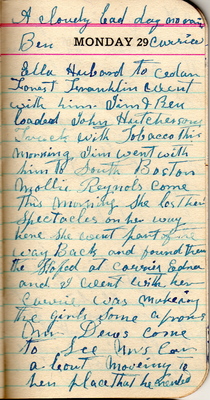 A lovely bad day no rain
Ben MONDAY 29 carried
Ella Hubard to Cedar
Forest Franklin went
with him. Jim & Ben
loaded John Hutchersons
Truck with Tobacco this
morning. Jim went with
him to South Boston
Mollie Reynols come
This morning She lost her
Spectacles on her way
here She went part of the
way Back and found them
She stoped at Carrier Edna
and I went with her
Carrie was makeing
the girls some aprons
Mr. Dews come
to See Mrs
a bout Moveing to
her place that he rented